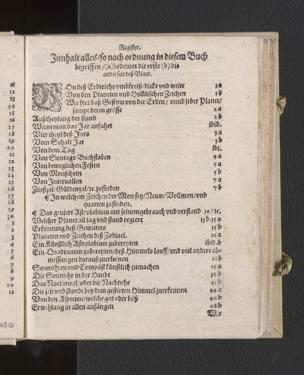 Register.
Innhalt alles/so nach ordnung in diesem Buch
begriffen/(a) bedeutet die erste (b) die
ander seit deß Blats.
Von deß Erdtrichs vmbkreiß/dicke vnd weite 1a
Von den Planeten vnd Himlischen Zeichen 1b
Wie ferr daß Gestirn von der Erden/ vnnd jeder Planet/
sampt deren grösse 2a
Außtheylung der stund 2b
Wann man das Jar anfahet ibid.
Vier theyl deß Jars 3a
Von Schalt Jar 3b
Von dem Tag ibi.
Von Sontags Buchstaben 4a
Von beweglichen Festen 5a
Von Monschein 6a
Von Interuallen 7a
Zinßzal/Güldenzal/rc. zufinden 7b
¶ In welchem Zeichen der Mon sey/Neuw/Vollmon/vnd
quarten zufinden.
¶ Das gruiert Astrolabium mit seinem gebrauch vnd verstand 10/rc.
Welcher Planet all tag vnd stund regiere
Erkennung deß Gewitters
Planeten vnd Zeichen deß Zodiaci.
Ein Künstlich Astrolabium zubereyten ibid.b
Ein Quadranten zubereyten/deß Himmels lauff/vnd viel andere ab-
messungen darauß zuerlernen
Sonnvhren vnd Compäst künstlich zumachen
Die Sonnvhr in der Handt
Das Nocturnal/oder die Nachtvhr
Die zeit vnd stunde bey dem gestirten Himmel zuerkennen
Von den Aspecten/welche gut oder böß
Erwehlung in allen anfängen